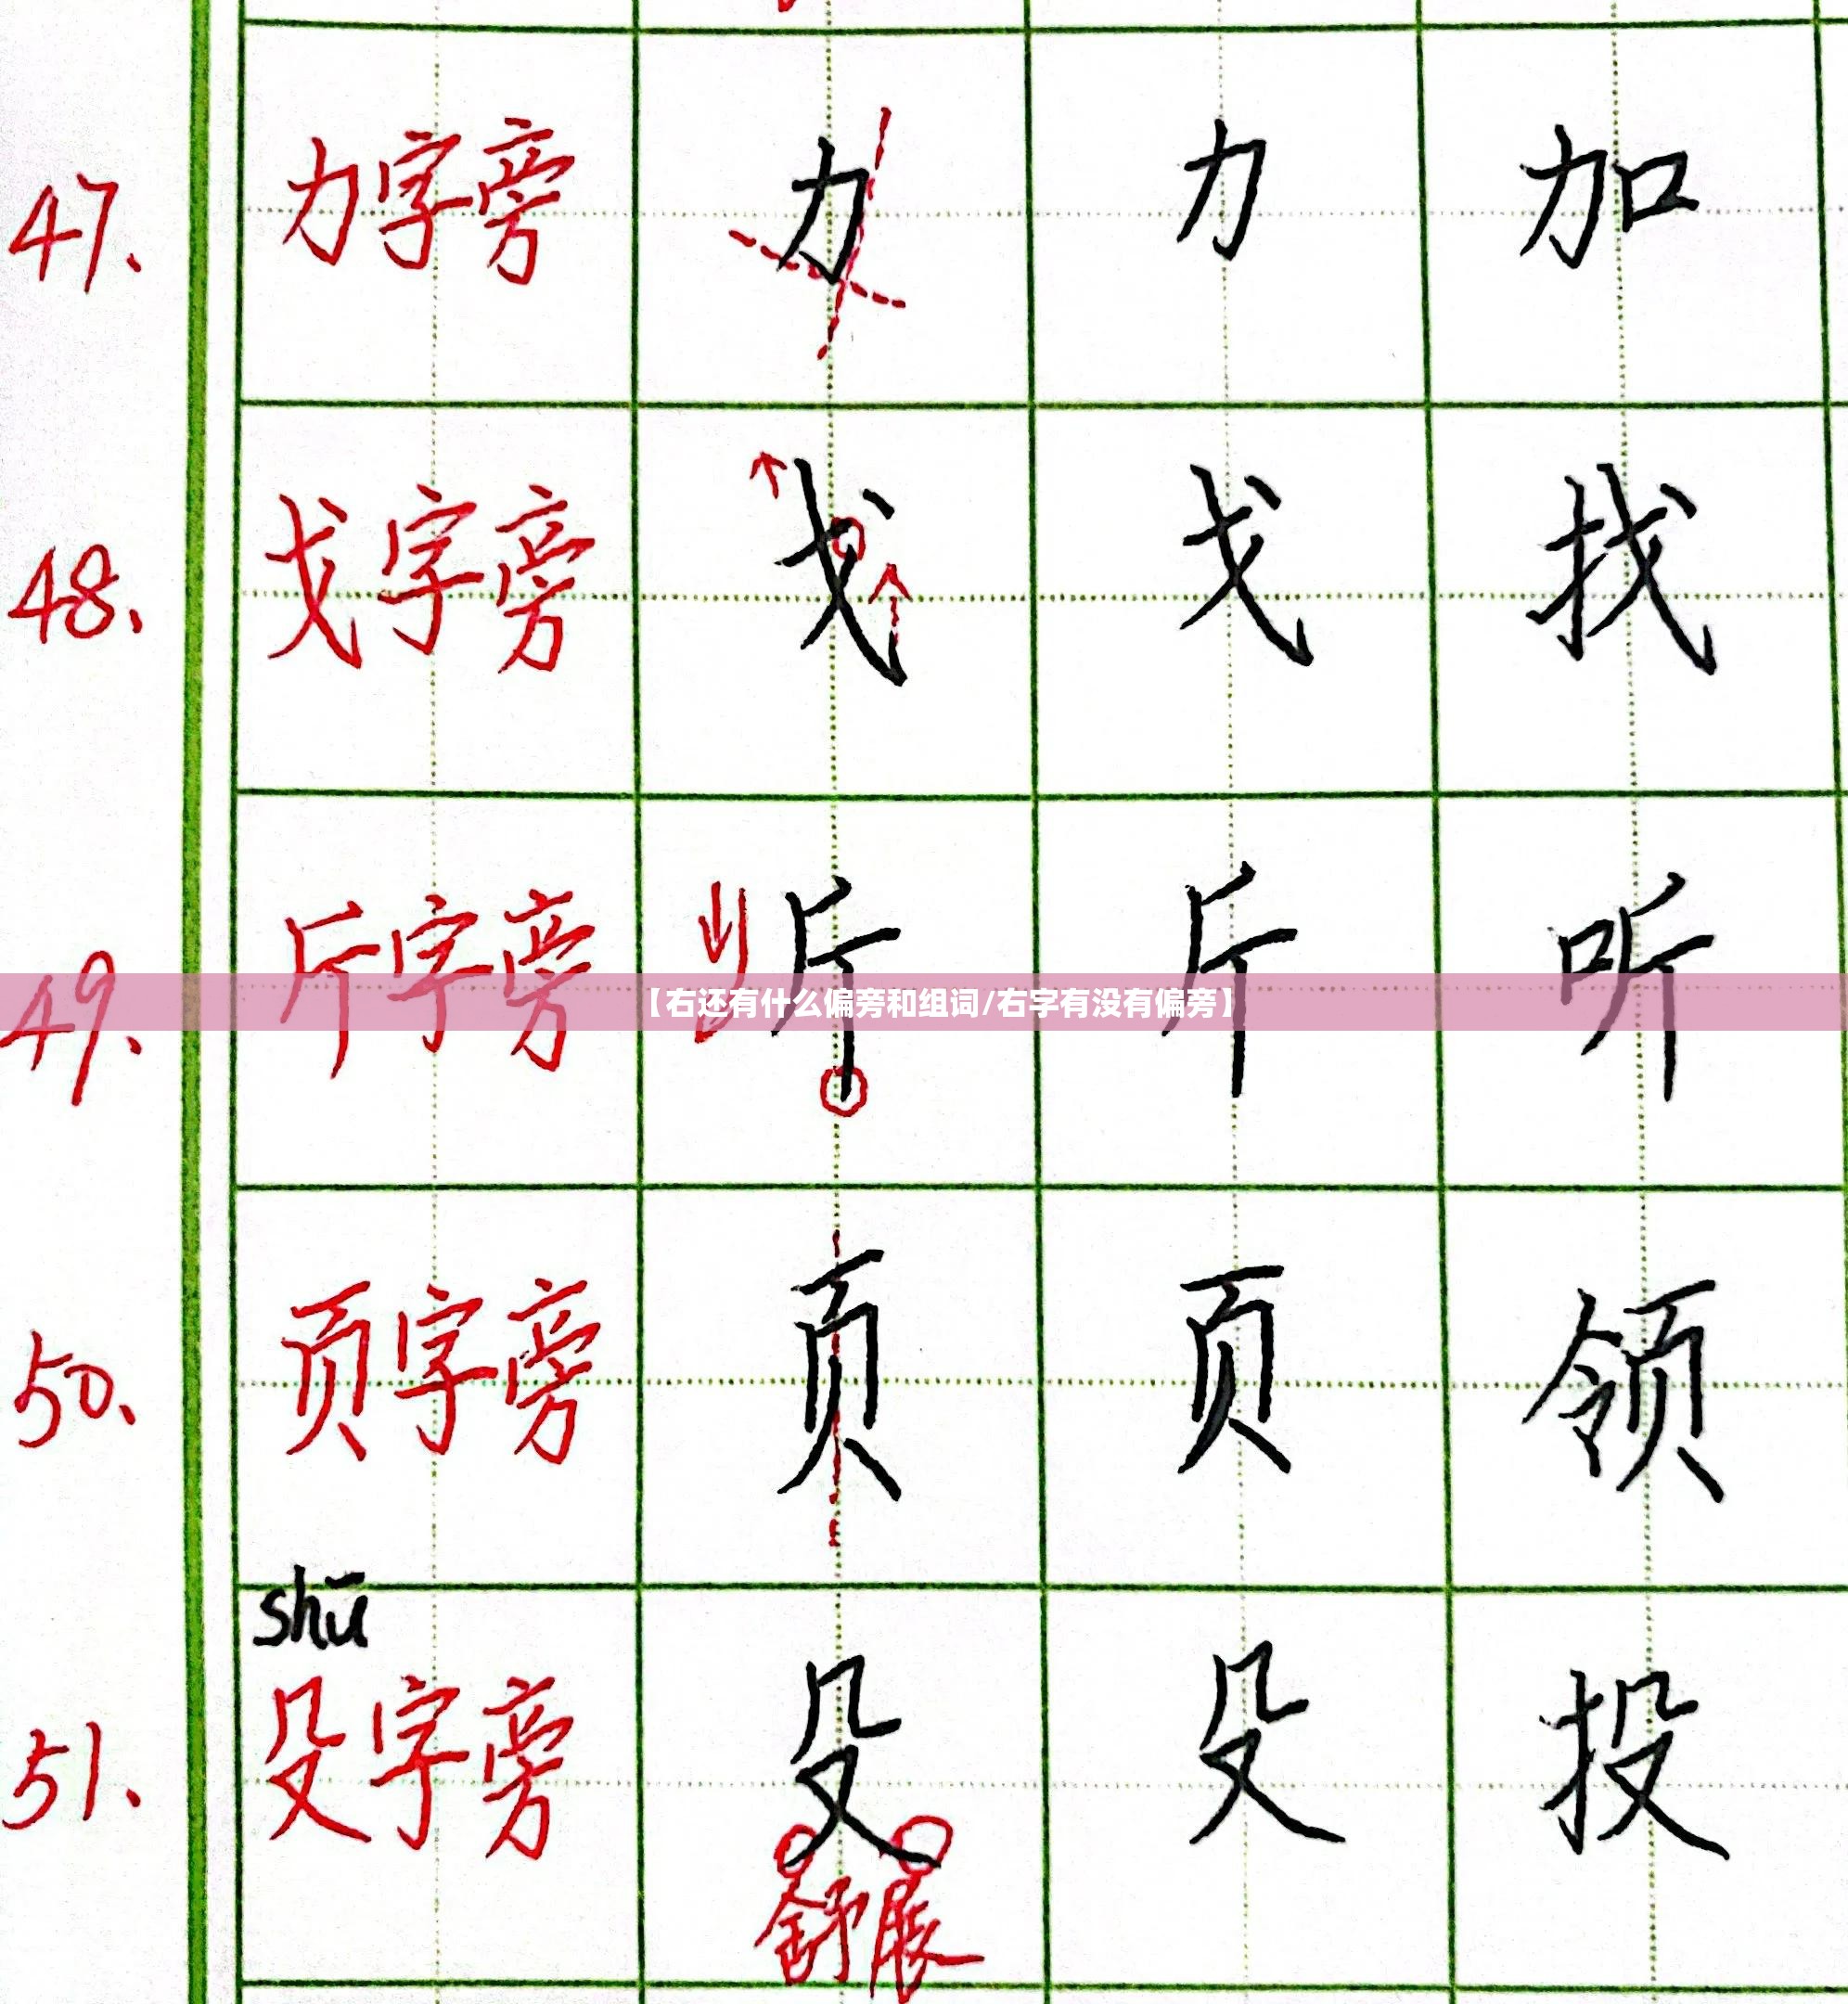 47. 力字旁 力 力 加
48. 戈字旁 戈 戈 找
49. 斤字旁 斤 斤 听
【右还有什么偏旁和组词/右字有没有偏旁】
50. 页字旁 页 页 领
shū
51. 殳字旁 殳 殳 投
舒展